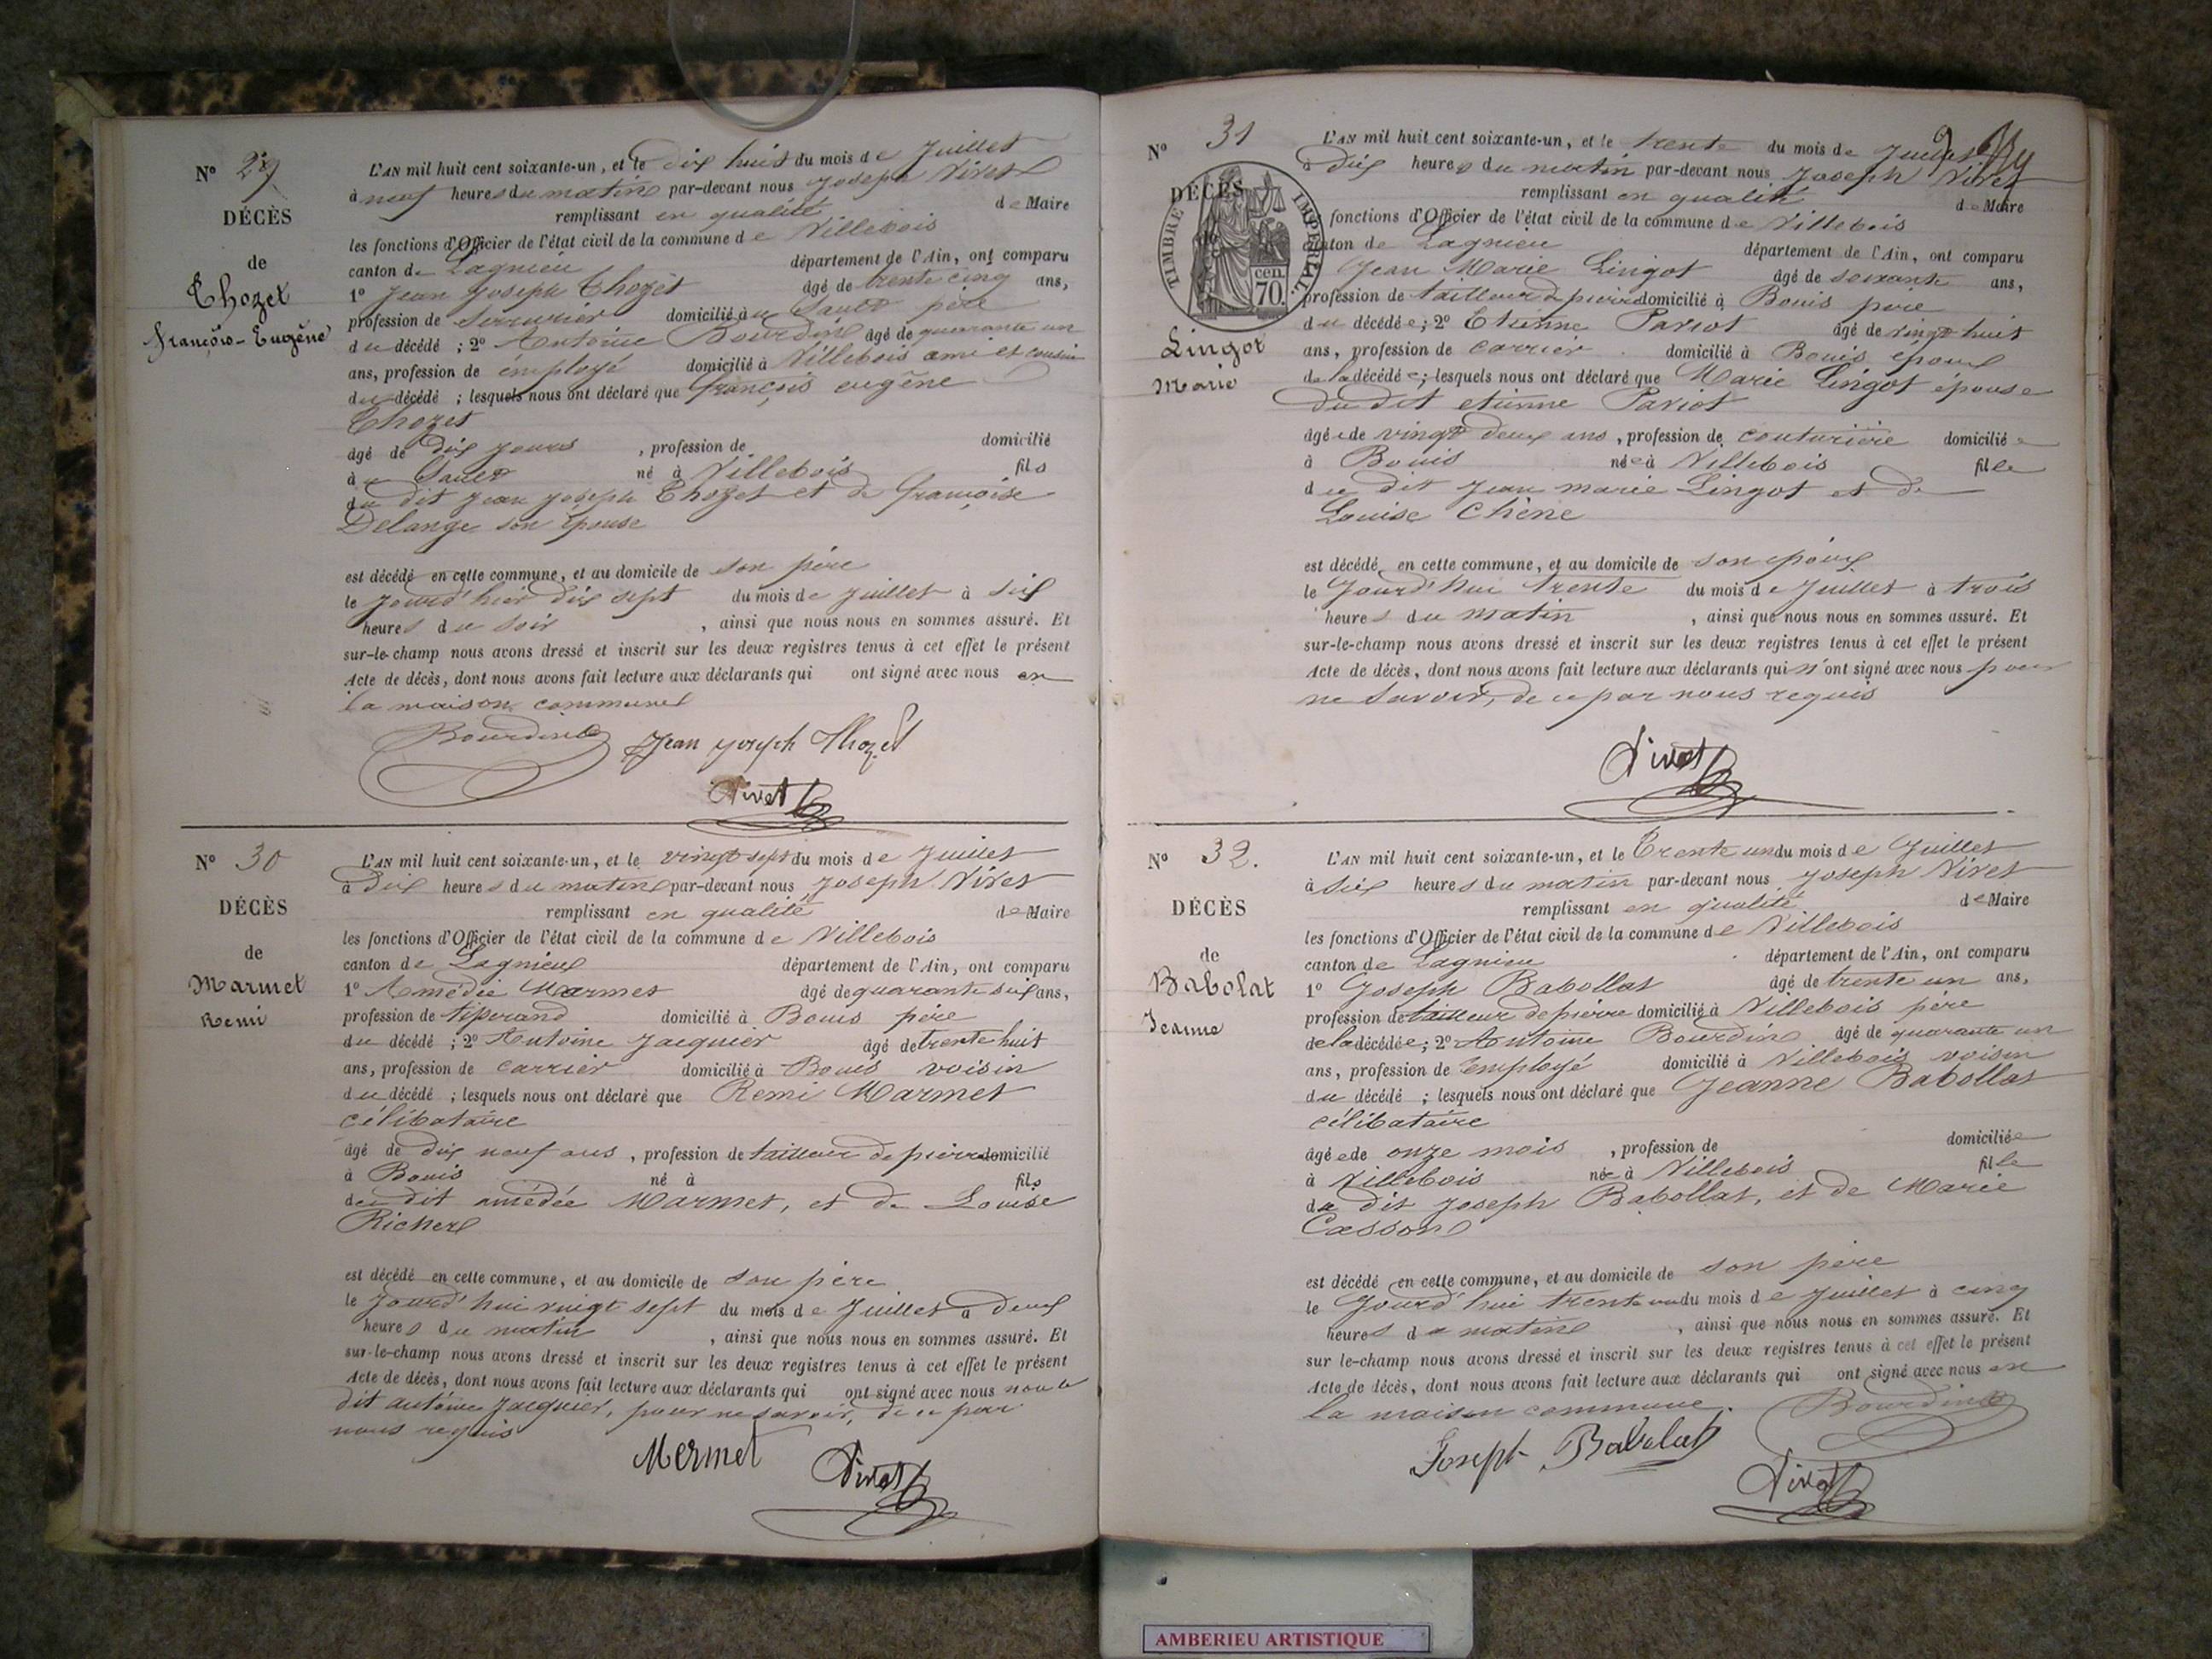 N° 29
DÉCÈS
de
Thozet
françois-Eugène
L'AN mil huit cent soixante-un, et le dix huit du mois de Juillet
à neuf heures du matin par-devant nous Joseph Vivet
remplissant en qualité de Maire
les fonctions d'Officier de l'état civil de la commune de Villebois
canton de Lagnieu département de l'Ain, ont comparu
1° Jean Joseph Thozet âgé de trente cinq ans,
profession de Serrurier domicilié au Sault père
du décédé ; 2° Antoine Bourdin âgé de quarante un
ans, profession de employé domicilié à Villebois ami et cousin
du décédé ; lesquels nous ont déclaré que françois eugène
Thozet
âgé de dix jours , profession de domicilié
au Sault né à Villebois fils
du dit Jean Joseph Thozet et de françoise
Delange son épouse
est décédé en cette commune, et au domicile de son père
le jourd'hier dix sept du mois de Juillet à six
heures du soir , ainsi que nous nous en sommes assuré. Et
sur-le-champ nous avons dressé et inscrit sur les deux registres tenus à cet effet le présent
Acte de décès, dont nous avons fait lecture aux déclarants qui ont signé avec nous en
la maison commune
Bourdin Jean joseph Thozet
Vivet
N° 30
DÉCÈS
de
Marmet
Remi
L'AN mil huit cent soixante-un, et le vingt sept du mois de Juillet
à dix heures du matin par-devant nous Joseph Vivet
remplissant en qualité de Maire
les fonctions d'Officier de l'état civil de la commune de Villebois
canton de Lagnieu département de l'Ain, ont comparu
1° Amédée Marmet âgé de quarante six ans,
profession de tisserand domicilié à Bouis père
du décédé ; 2° Antoine Jacquier âgé de trente huit
ans, profession de carrier domicilié à Bouis voisin
du décédé ; lesquels nous ont déclaré que Remi Marmet
célibataire
âgé de dix neuf ans , profession de tailleur de pierre domicilié
à Bouis né à fils
du dit amédée Marmet, et de Louise
Richerd
est décédé en cette commune, et au domicile de son père
le jourd'hui vingt sept du mois de Juillet à deux
heures du matin , ainsi que nous nous en sommes assuré. Et
sur-le-champ nous avons dressé et inscrit sur les deux registres tenus à cet effet le présent
Acte de décès, dont nous avons fait lecture aux déclarants qui ont signé avec nous non le
dit antoine Jacquier, pour ne savoir, de ce par
nous requis
Mermet Vivet
N° 31
DÉCÈS
de
TIMBRE IMPÉRIAL
70 cen.
Lingot
Marie
L'AN mil huit cent soixante-un, et le trente du mois de Juillet
à dix heures du matin par-devant nous Joseph Vivet
remplissant en qualité de Maire
fonctions d'Officier de l'état civil de la commune de Villebois
canton de Lagnieu département de l'Ain, ont comparu
Jean Marie Lingot âgé de soixante ans,
profession de tailleur de pierre domicilié à Bouis père
du décédée; 2° Etienne Pariot âgé de vingt huit
ans, profession de carrier domicilié à Bouis époux
de la décédée; lesquels nous ont déclaré que Marie Lingot épouse
du dit etienne Pariot
âgée de vingt deux ans , profession de couturière domiciliée
à Bouis née à Villebois fille
du dit Jean marie Lingot et de
Louise Chêne
est décédé en cette commune, et au domicile de son époux
le Jourd'hui trente du mois de Juillet à trois
heures du matin , ainsi que nous nous en sommes assuré. Et
sur-le-champ nous avons dressé et inscrit sur les deux registres tenus à cet effet le présent
Acte de décès, dont nous avons fait lecture aux déclarants qui n'ont signé avec nous pour
ne savoir, de ce par nous requis
Vivet
N° 32.
DÉCÈS
de
Babolat
Jeanne
L'AN mil huit cent soixante-un, et le Trente un du mois de Juillet
à six heures du matin par-devant nous Joseph Vivet
remplissant en qualité de Maire
les fonctions d'Officier de l'état civil de la commune de Villebois
canton de Lagnieu département de l'Ain, ont comparu
1° Joseph Babollat âgé de trente un ans,
profession de tailleur de pierre domicilié à Villebois père
de la décédée; 2° Antoine Bourdin âgé de quarante un
ans, profession de employé domicilié à Villebois voisin
du décédé ; lesquels nous ont déclaré que Jeanne Babollat
célibataire
âgée de onze mois , profession de domiciliée
à Villebois née à Villebois fille
du dit Joseph Babollat, et de Marie
Casson
est décédé en cette commune, et au domicile de son père
le Jourd'hui trente un du mois de Juillet à cinq
heures du matin , ainsi que nous nous en sommes assuré. Et
sur le-champ nous avons dressé et inscrit sur les deux registres tenus à cet effet le présent
Acte de décès, dont nous avons fait lecture aux déclarants qui ont signé avec nous en
la maison commune.
Bourdin
Joseph Babolat
Vivet
AMBERIEU ARTISTIQUE